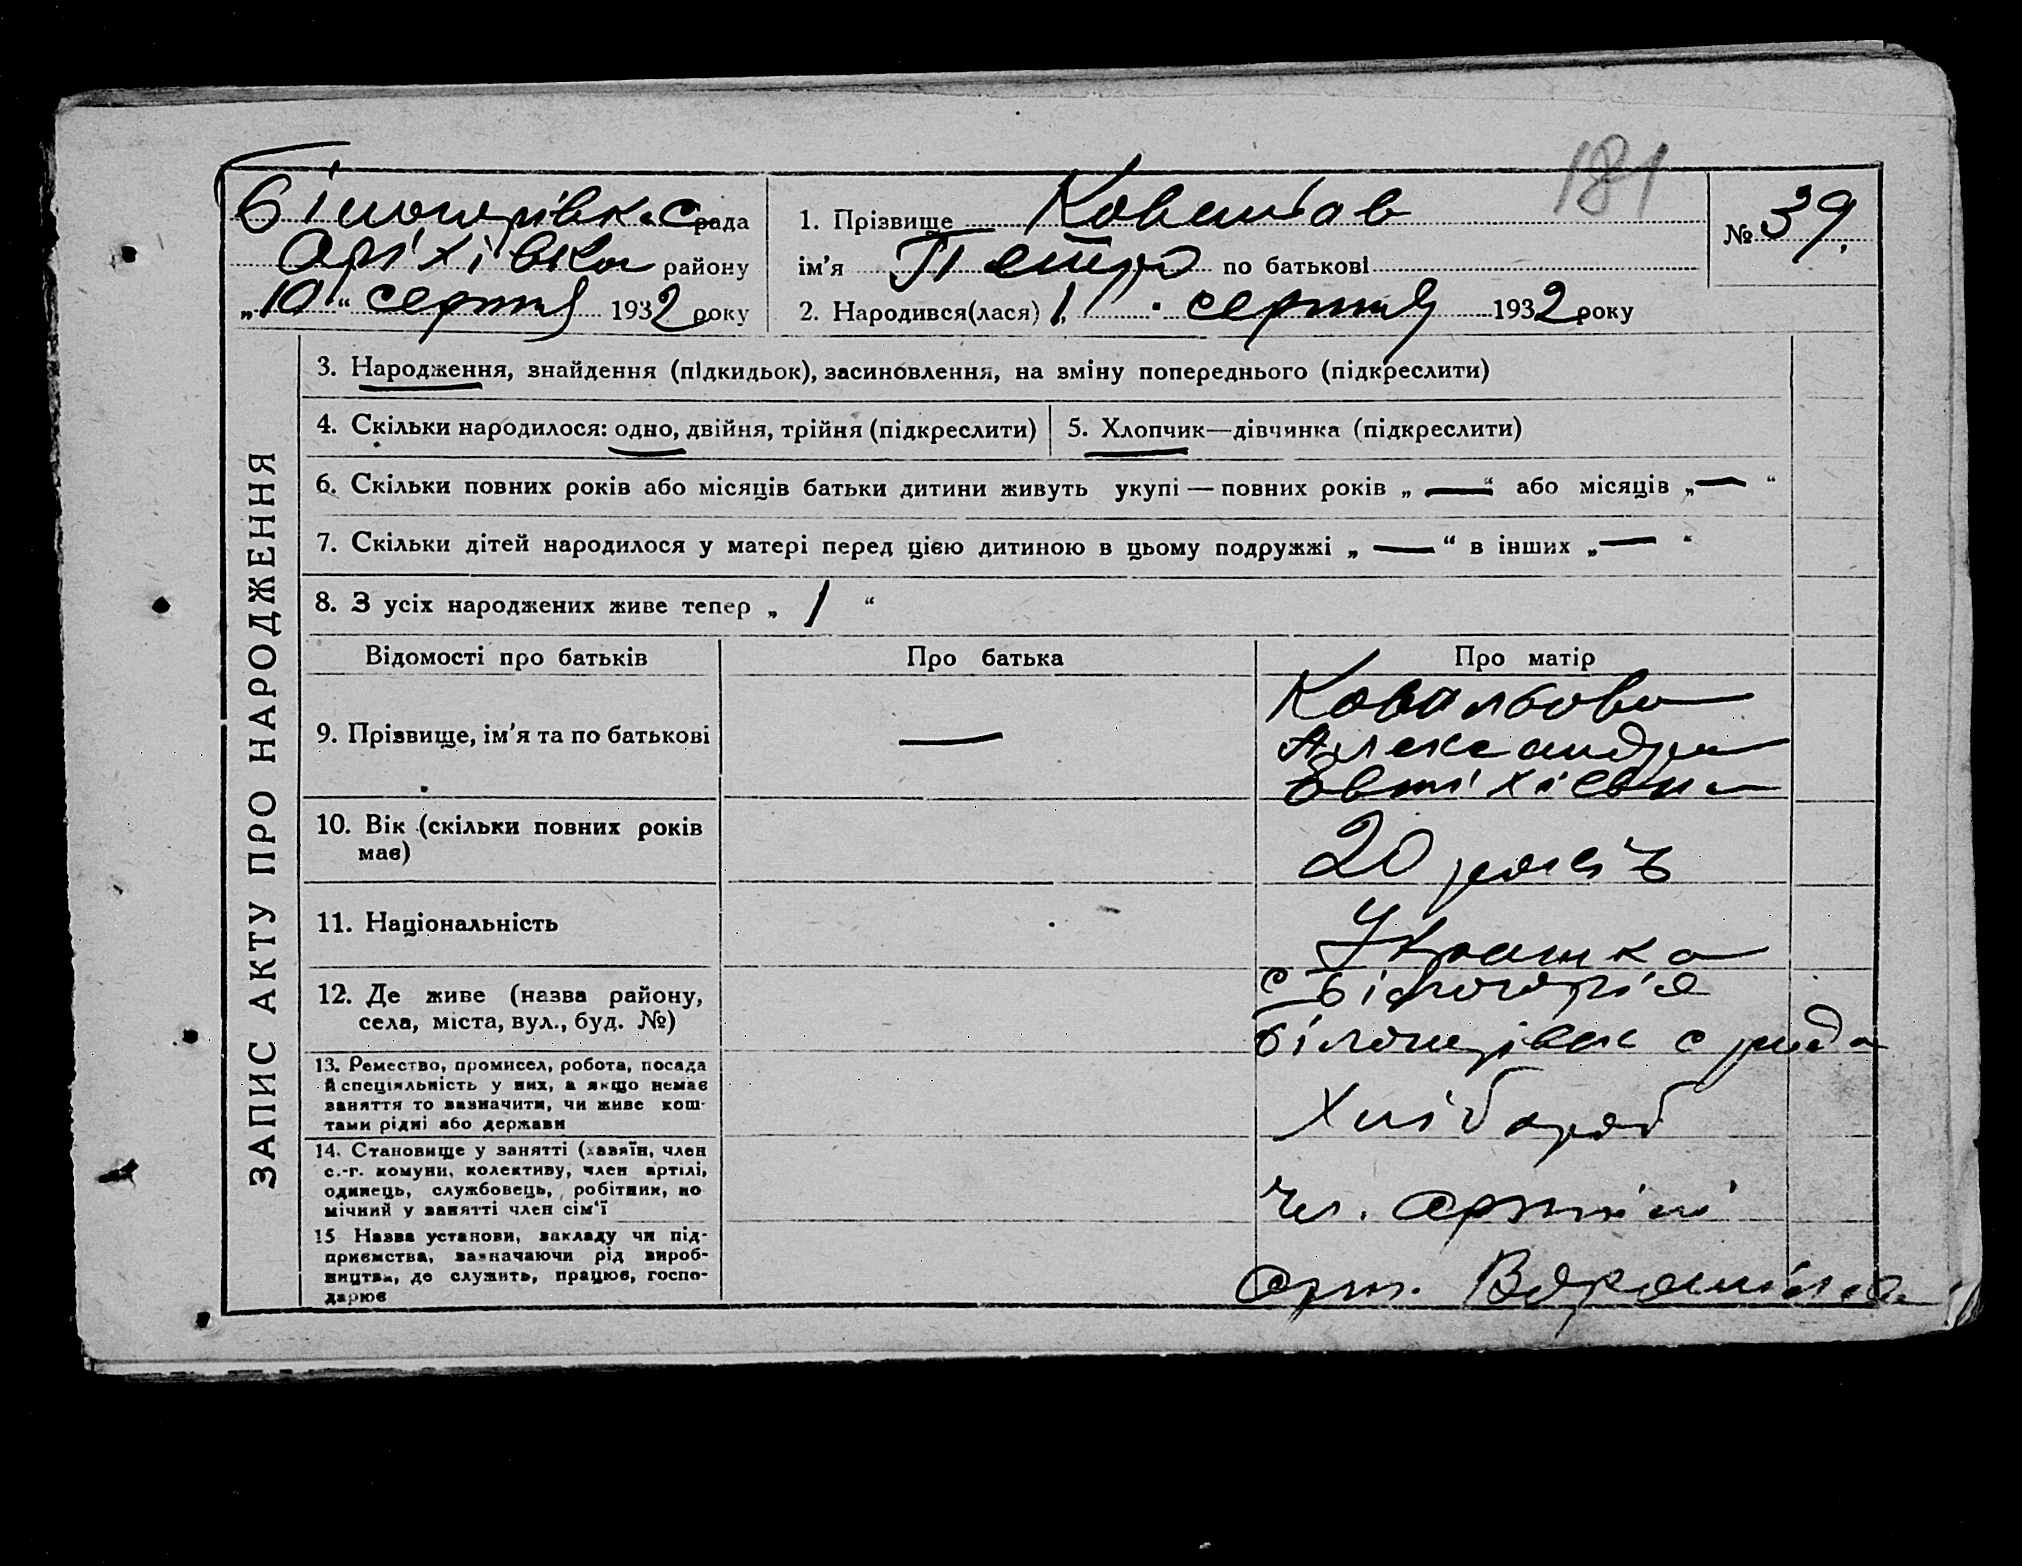 181
Білогорівка с рада
Оріхівка району
„10“ серпня 1932 року
1. Прізвище Ковальов
ім'я Петро по батькові
2. Народився(лася) 1 серпня 1932 року
№ 39.
ЗАПИС АКТУ ПРО НАРОДЖЕННЯ
3. Народження, знайдення (підкидьок), засиновлення, на зміну попереднього (підкреслити)
4. Скільки народилося: одно, двійня, трійня (підкреслити)
5. Хлопчик—дівчинка (підкреслити)
6. Скільки повних років або місяців батьки дитини живуть укупі — повних років „ — “ або місяців „ — “
7. Скільки дітей народилося у матері перед цією дитиною в цьому подружжі „ — “ в інших „ — “
8. З усіх народжених живе тепер „ 1 “
Відомості про батьків Про батька Про матір
9. Прізвище, ім'я та по батькові —
Ковальова
Александра
Евтіхієвна
10. Вік (скільки повних років
має)
20 років
11. Національність
Укранка
12. Де живе (назва району,
села, міста, вул., буд. №)
с Білогорія
Білогорівск с рада
13. Ремество, промисел, робота, посада
й спеціяльність у них, а якщо немає
заняття то зазначити, чи живе кош-
тами рідні або держави
Хлібороб
14. Становище у занятті (хазяїн, член
с.-г. комуни, колективу, член артілі,
одинець, службовець, робітник, по
мічний у занятті член сім'ї
чл. артілі
15 Назва установи, закладу чи під-
приємства, зазначаючи рід вироб-
ництва, де служить, працює, госпо-
дарює
арт. Ворошілова